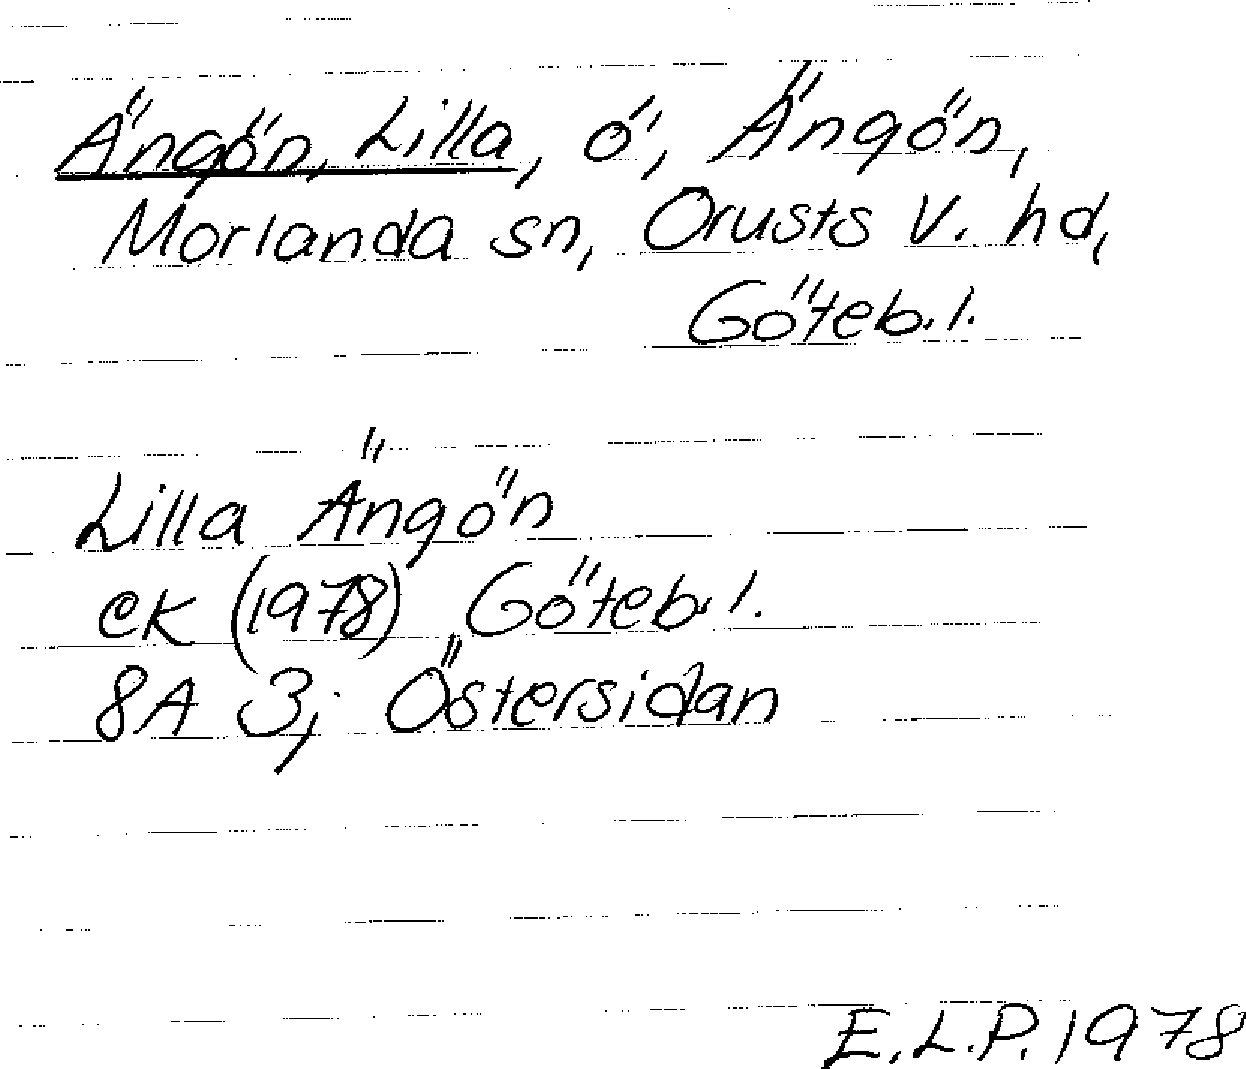 Ängön, Lilla, ö, Ängön,
Morlanda sn, Orusts V. hd,
Göteb. l.
Lilla Ängön
ek (1978) Göteb. l.
8A 3; Östersidan
E.L.P. 1978